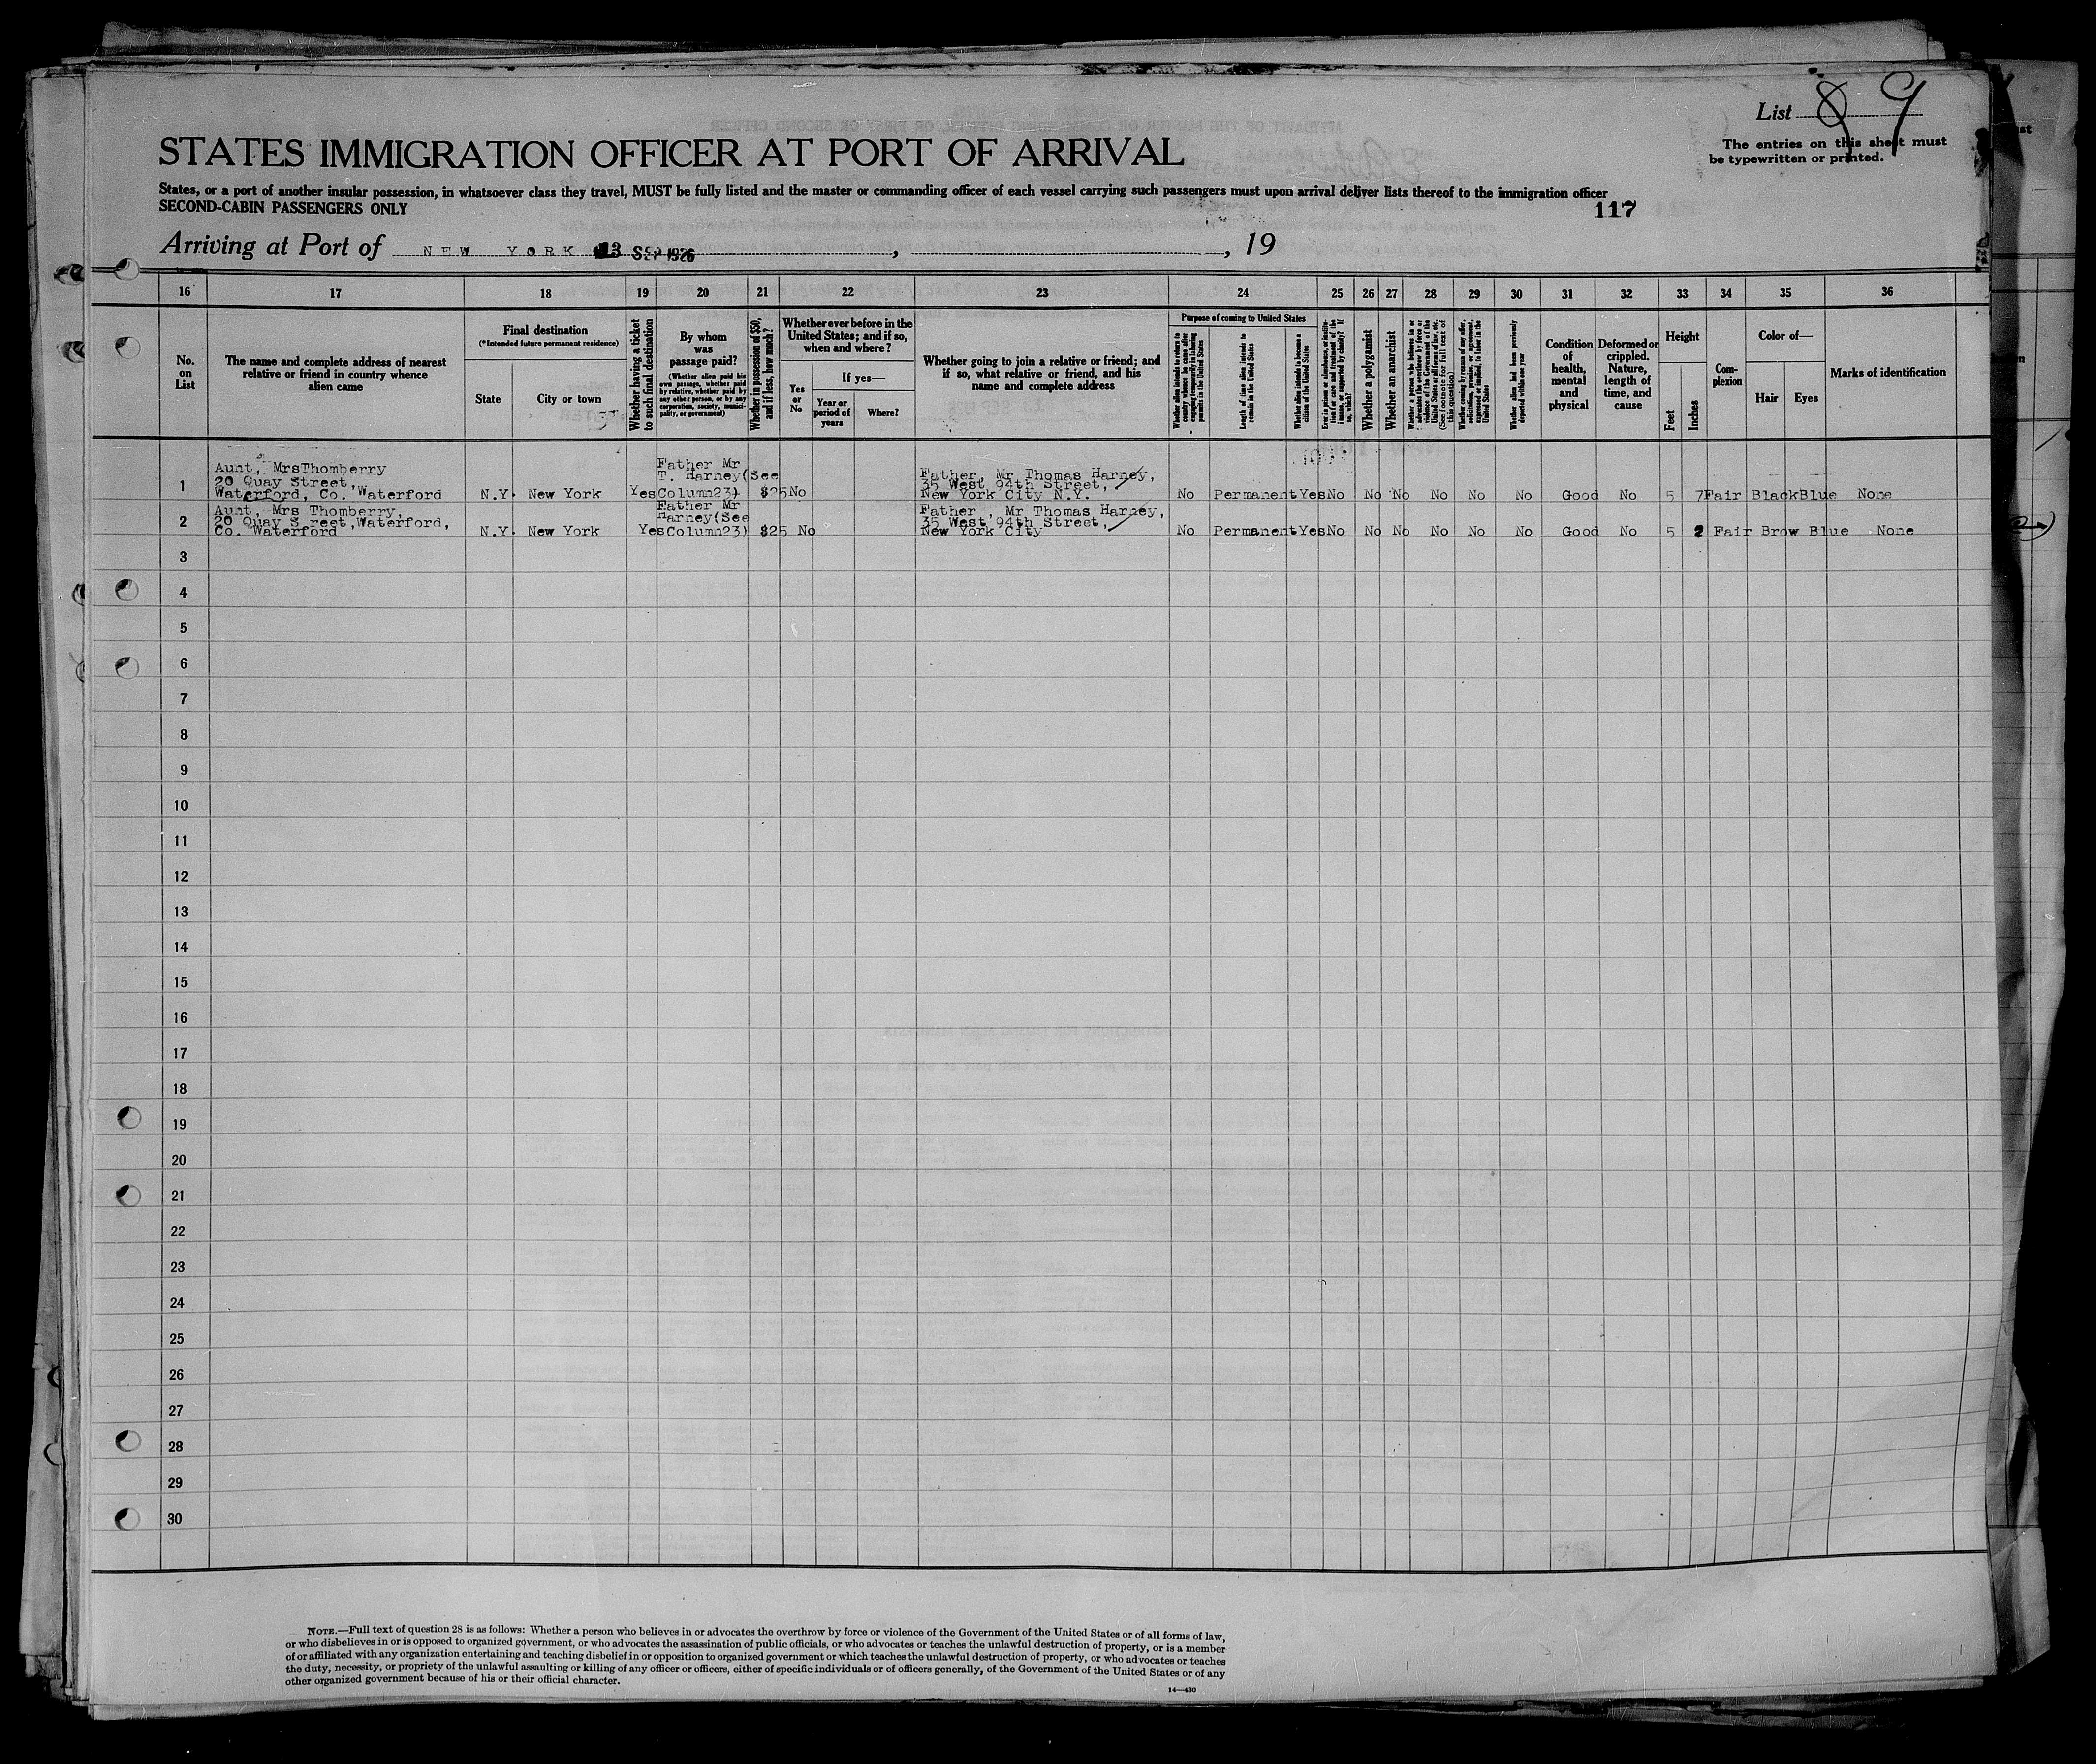 List 8 9
The entries on this sheet must
be typewritten or printed.
STATES IMMIGRATION OFFICER AT PORT OF ARRIVAL
States, or a port of another insular possession, in whatsoever class they travel, MUST be fully listed and the master or commanding officer of each vessel carrying such passengers must upon arrival deliver lists thereof to the immigration officer
SECOND-CABIN PASSENGERS ONLY
117
Arriving at Port of NEW YORK 13 SEP 1926, , 19
16 17 18 19 20 21 22 23 24 25 26 27 28 29 30 31 32 33 34 35 36
No.
on
List
The name and complete address of nearest
relative or friend in country whence
alien came
Final destination
(*Intended future permanent residence)
State
City or town
Whether having a ticket
to such final destination
By whom
was
passage paid?
(Whether alien paid his
own passage, whether paid
by relative, whether paid by
any other person, or by any
corporation, society, munici-
pality, or government)
Whether in possession of $50,
and if less, how much?
Whether ever before in the
United States; and if so,
when and where?
Yes
or
No
If yes—
Year or
period of
years
Where?
Whether going to join a relative or friend; and
if so, what relative or friend, and his
name and complete address
Purpose of coming to United States
Whether alien intends to return to
country whence he came after
engaging temporarily in laboring
pursuits in the United States
Length of time alien intends to
remain in the United States
Whether alien intends to become a
citizen of the United States
Ever in prison or almshouse, or institu-
tion for care and treatment of the
insane, or supported by charity? If
so, which?
Whether a polygamist
Whether an anarchist
Whether a person who believes in or
advocates the overthrow by force or
violence of the Government of the
United States or all forms of law, etc.
(See footnote for full text of
this question)
Whether coming by reason of any offer,
solicitation, promise, or agreement,
expressed or implied, to labor in the
United States
Whether alien had been previously
deported within one year
Condition
of
health,
mental
and
physical
Deformed or
crippled.
Nature,
length of
time, and
cause
Height
Feet
Inches
Com-
plexion
Color of—
Hair
Eyes
Marks of identification
1
Aunt, MrsThomberry
20 Quay Street,
Waterford, Co. Waterford
N.Y. New York Yes
Father Mr
T. Harney(See
Column23)
$25 No
Father, Mr Thomas Harney,
35 West 94th Street,
New York City N.Y.
No Permanent Yes No No No No No No Good No 5 7 Fair Black Blue None
2
Aunt, Mrs Thomberry,
20 Quay S reet,Waterford,
Co. Waterford
N.Y. New York Yes
Father Mr
Harney(See
Column23)
$25 No
Father , Mr Thomas Harney,
35 West 94th Street,
New York City
No Permanent Yes No No No No No No Good No 5 2 Fair Brow Blue None
3
4
5
6
7
8
9
10
11
12
13
14
15
16
17
18
19
20
21
22
23
24
25
26
27
28
29
30
NOTE.—Full text of question 28 is as follows: Whether a person who believes in or advocates the overthrow by force or violence of the Government of the United States or of all forms of law,
or who disbelieves in or is opposed to organized government, or who advocates the assassination of public officials, or who advocates or teaches the unlawful destruction of property, or is a member
of or affiliated with any organization entertaining and teaching disbelief in or opposition to organized government or which teaches the unlawful destruction of property, or who advocates or teaches
the duty, necessity, or propriety of the unlawful assaulting or killing of any officer or officers, either of specific individuals or of officers generally, of the Government of the United States or of any
other organized government because of his or their official character.
14—430